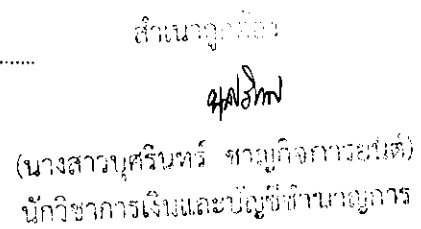 สำเนาถูกต้อง
(นางสาวบุศรินทร์ ชาญกิจการยนต์)
นักวิชาการเงินและบัญชีชำนาญการ